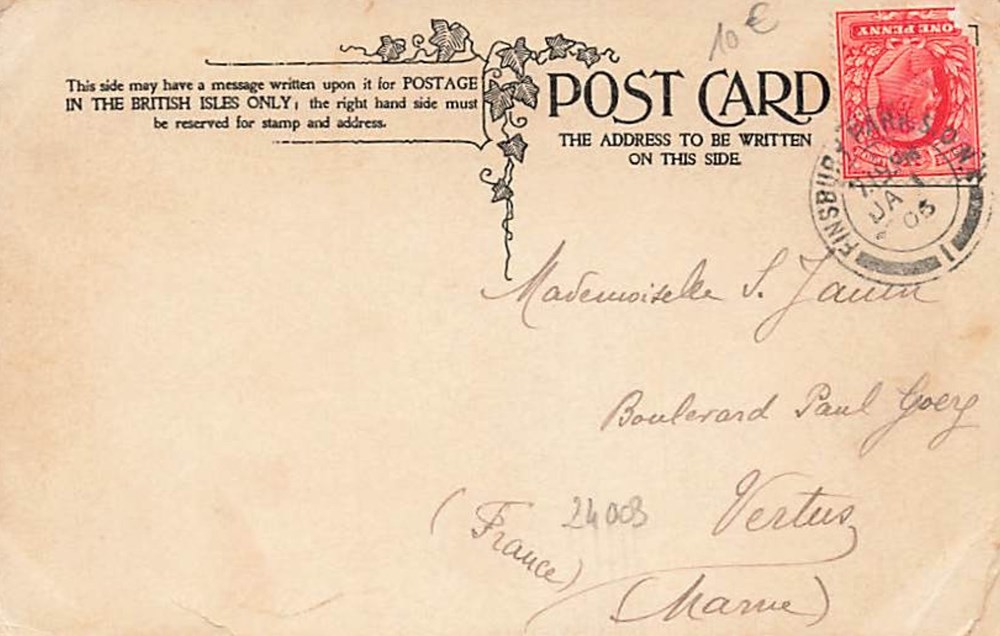 10 €
This side may have a message written upon it for POSTAGE
IN THE BRITISH ISLES ONLY; the right hand side must
be reserved for stamp and address.
POST CARD
THE ADDRESS TO BE WRITTEN
ON THIS SIDE.
ONE PENNY
FINSBURY PARK
JA 1
05
1
Mademoiselle S. Janin
Boulevard Paul Goerg
24003
Vertus
(France)
(Marne)